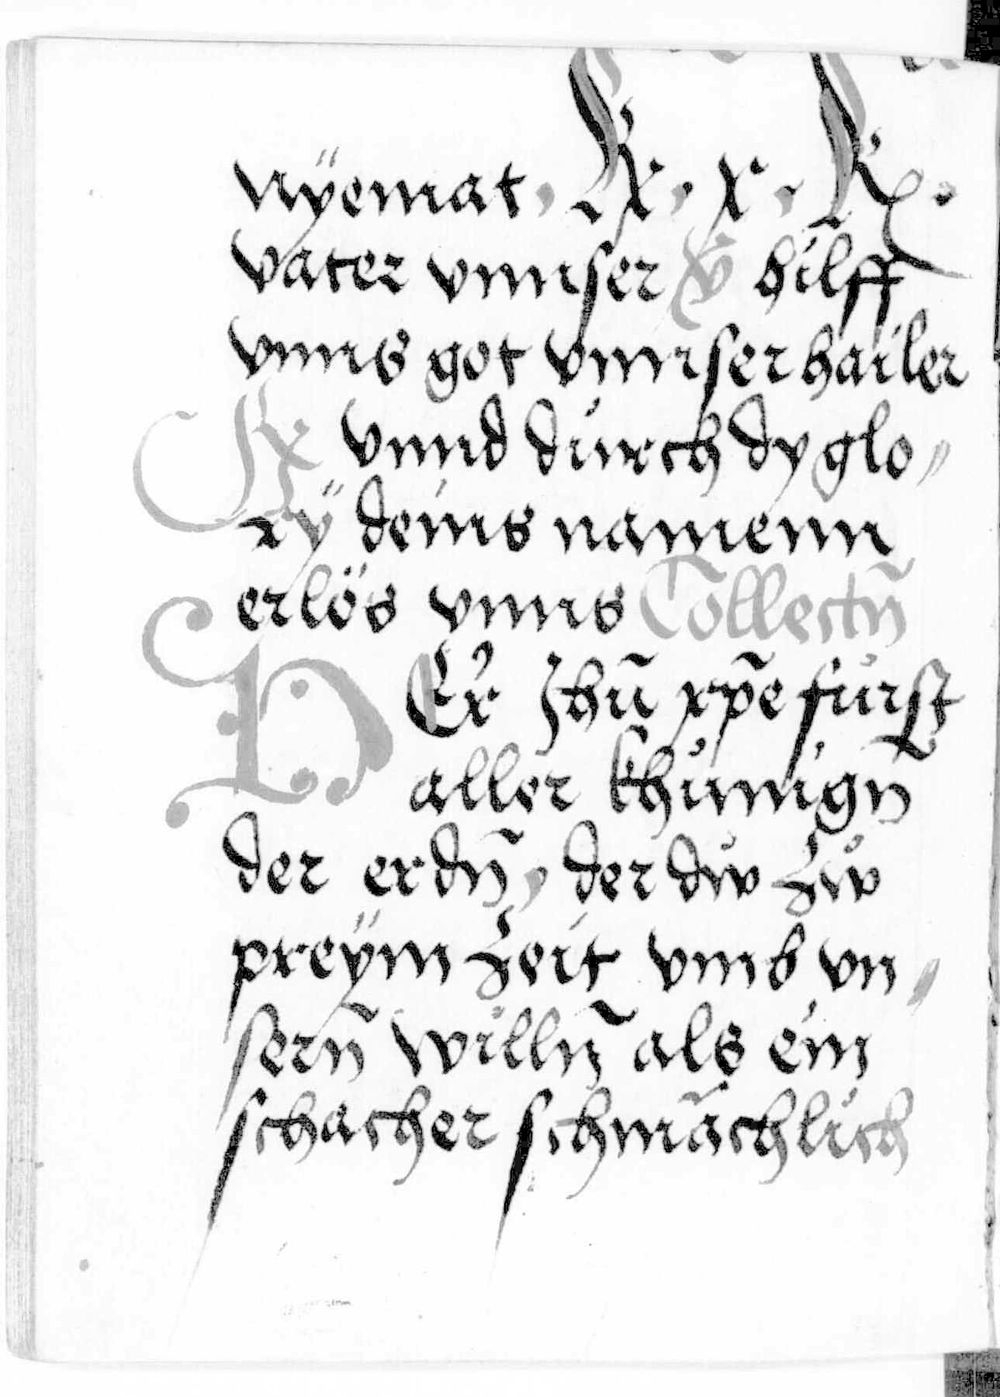 nyemat. K. x. K.
vater vnnser V hilff
vnns got vnnser hailer
R vnnd durch dy glo,
rÿ deins namenn
erlös vnns Collectn̄
DEr Jhū xp̄e fürst
aller khünign̄
der erdn̄, der dw zw
preÿm zeit vmb vn,
sern̄ willn̄ als ein
schacher schmächlich